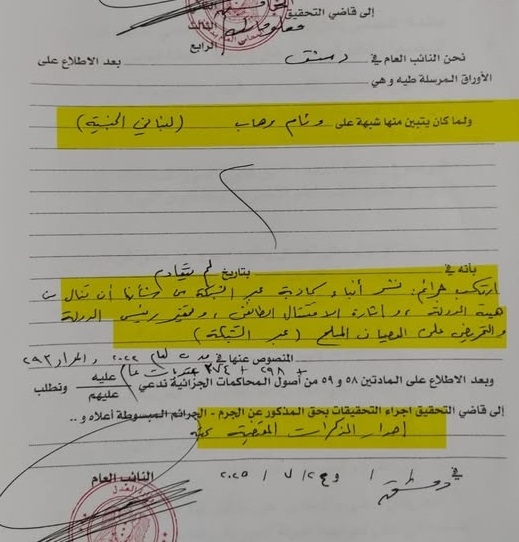 إلى قاضي التحقيق
الثالث
الرابع
نحن النائب العام في دمشق بعد الاطلاع على
الأوراق المرسلة طيه وهي
ولما كان يتبين منها شبهة على وئام وهاب (لبناني الجنسية)
بأنه في بتاريخ لم يتقادم
ارتكب جرائم: نشر أنباء كاذبة عبر الشبكة من شأنها أن تنال من
هيبة الدولة، واثارة الاقتتال الطائفي، وتحقير رئيس الدولة
والتحريض على العصيان المسلح (عبر الشبكة)
المنصوص عنها في لعام ٢٠٢٢ والمواد ٢٩٣
+ ٢٩٨ + ٣٧٤ عقوبات عام
وبعد الاطلاع على المادتين ٥٨ و ٥٩ من أصول المحاكمات الجزائية ندعي عليه عليهم ونطلب
إلى قاضي التحقيق اجراء التحقيقات بحق المذكور عن الجرم - الجرائم المبسوطة أعلاه و ..
اصدار المذكرات المقتضية بحقه
في دمشق / و / ٧ / ٢٠٢٥
النائب العام